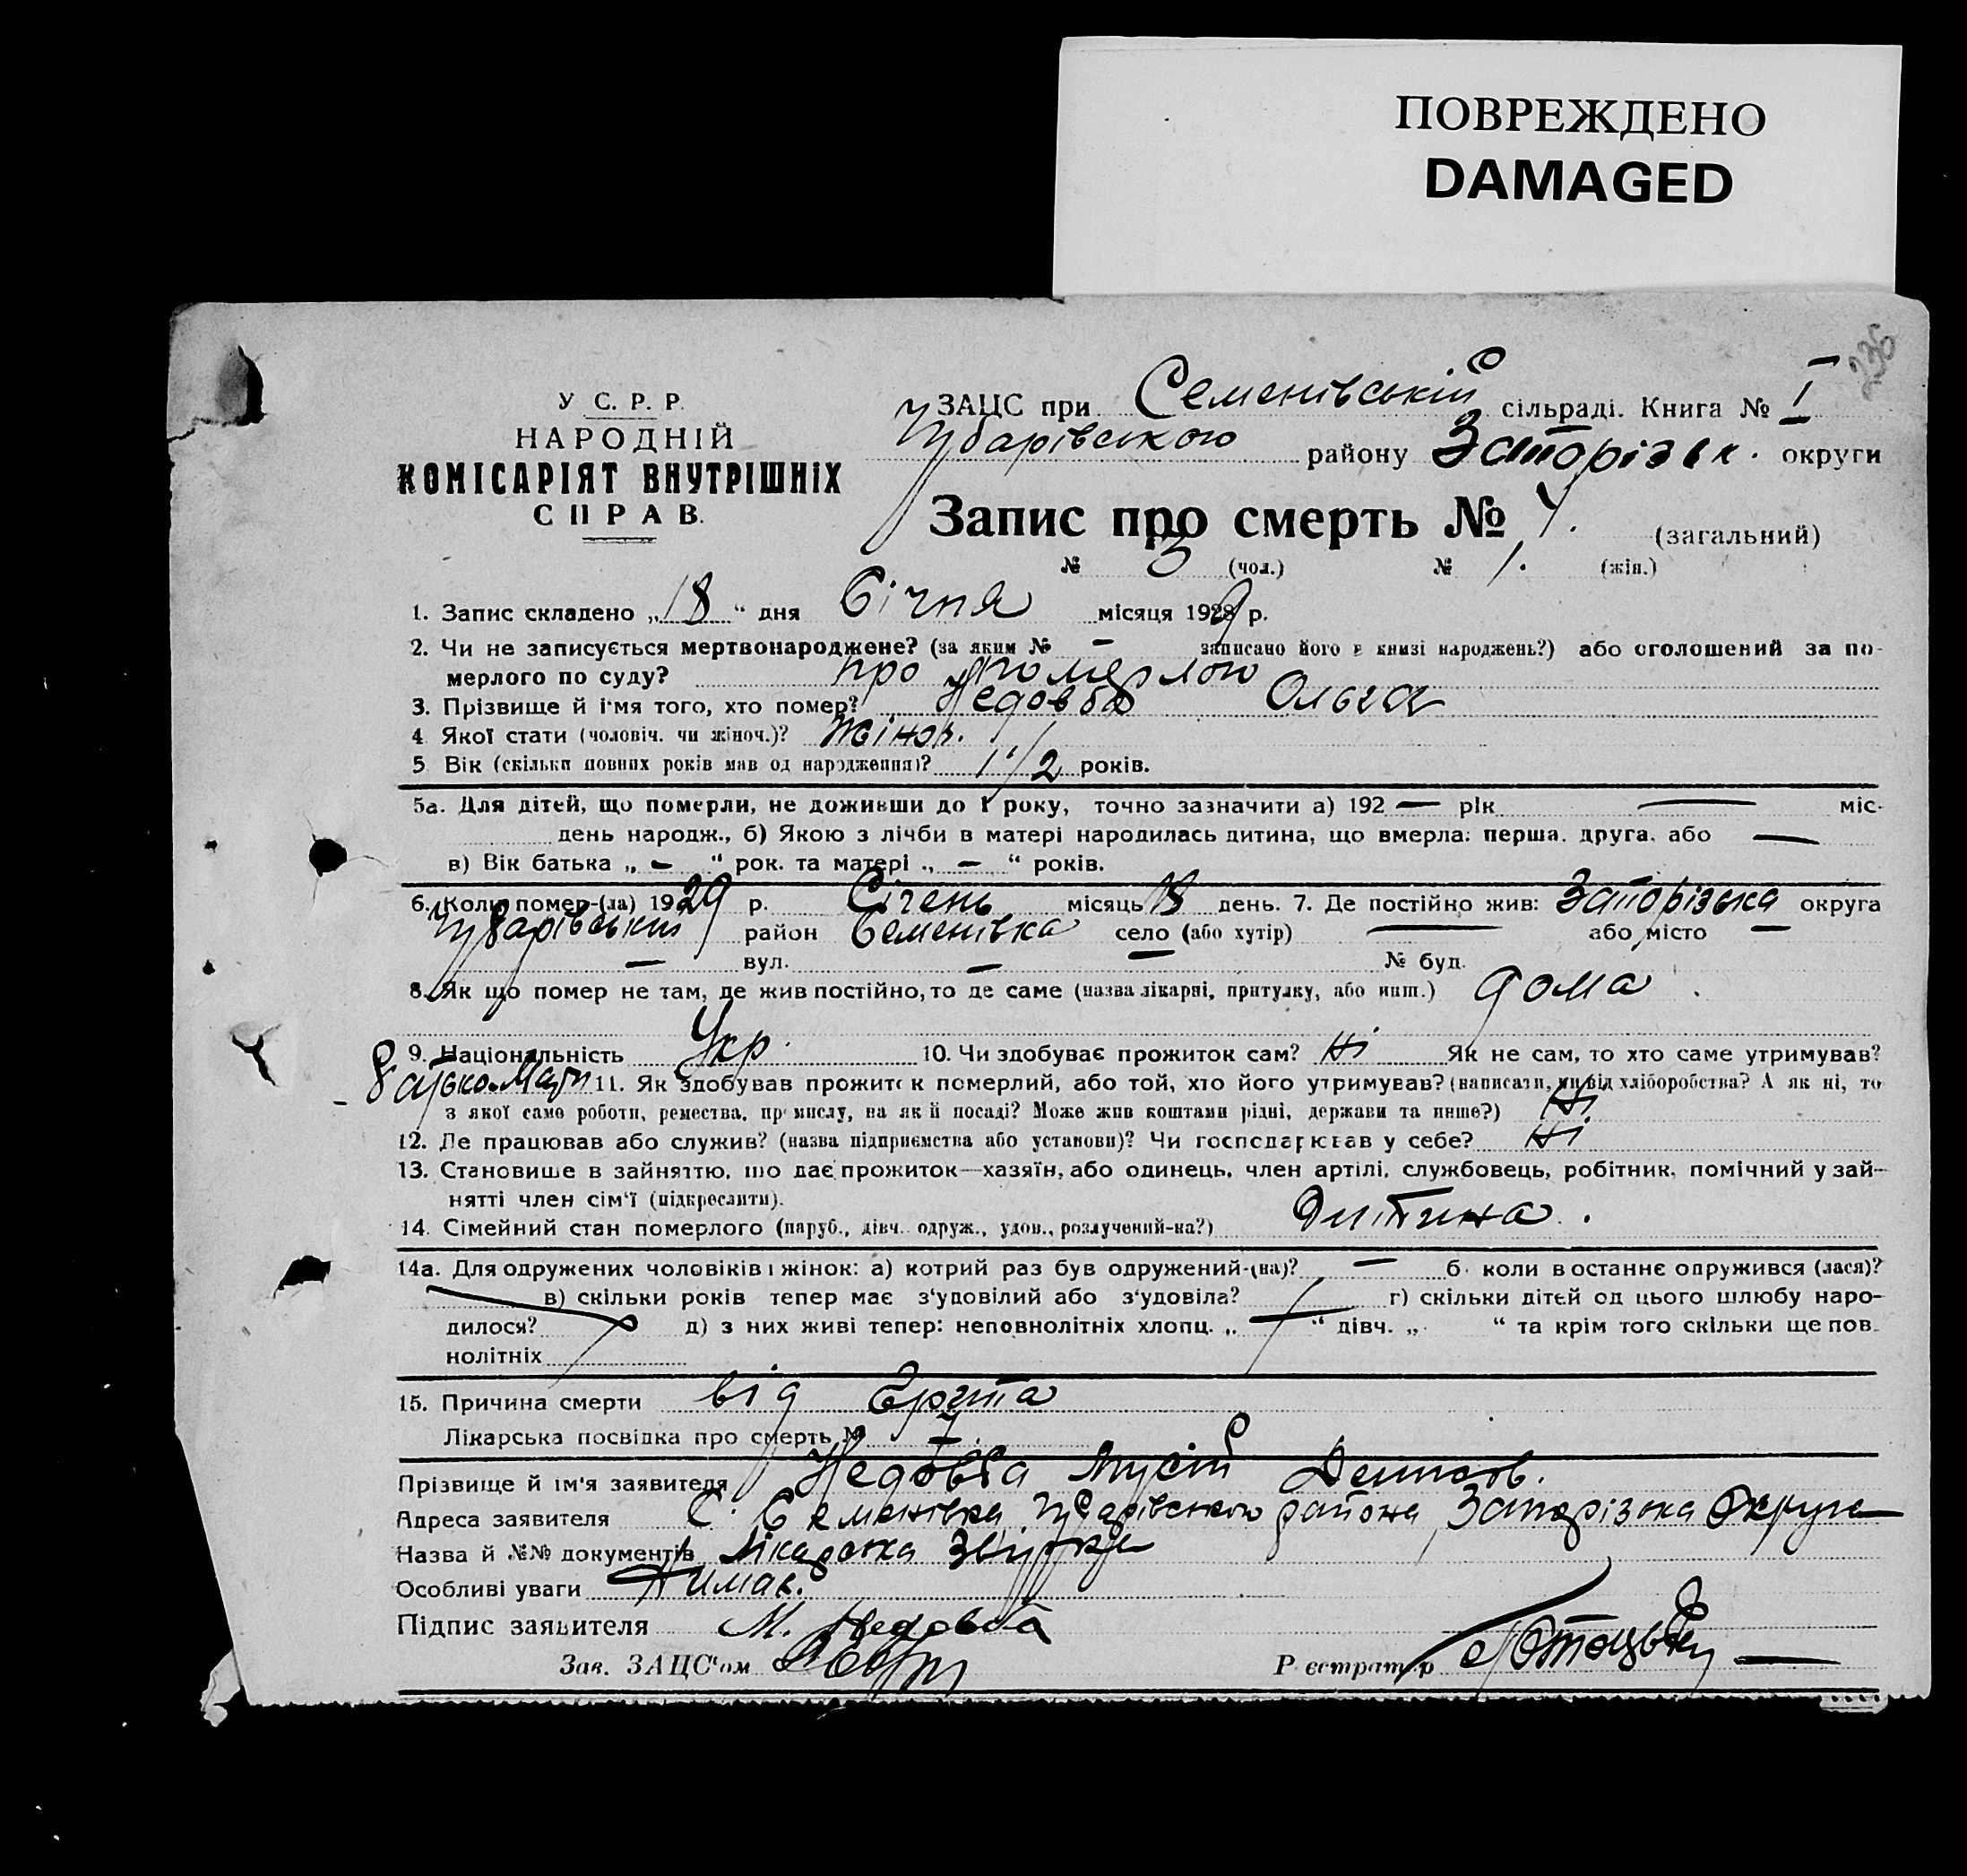 ПОВРЕЖДЕНО
DAMAGED
236
У С. Р. Р.
НАРОДНІЙ
КОМІСАРІЯТ ВНУТРІШНІХ
СПРАВ.
ЗАЦС при Семенівській сільраді. Книга № I
Чубарівського району Запорізьк. округи
Запис про смерть № 4. (загальний)
№ 3 (чол.) № 1. (жін.)
1. Запис складено „18“ дня Січня місяця 1929 р.
2. Чи не записується мертвонароджене? (за яким № — записано його в книзі народжень?) або оголошений за по-
мерлого по суду? про померлою
3. Прізвище й імя того, хто помер? Недовба Ольга
4 Якої стати (чоловіч. чи жіноч.)? Жіноч.
5 Вік (скільки повних років мав од народження)? 1 1/2 років.
5а. Для дітей, що померли, не доживши до 1 року, точно зазначити а) 192 — рік — міс.
день народж., б) Якою з лічби в матері народилась дитина, що вмерла: перша, друга, або —
в) Вік батька „ — “ рок. та матері „ — “ років.
6. Коли помер-(ла) 1929 р. Січень місяць 18 день. 7. Де постійно жив: Запорізька округа
Чубарівський район Семенівка село (або хутір) — або місто —
— вул. — — № буд.
8. Як що помер не там, де жив постійно, то де саме (назва лікарні, притулку, або инш.) дома
9. Національність Укр. 10. Чи здобуває прожиток сам? Ні Як не сам, то хто саме утримував?
батько Мати 11. Як здобував прожиток померлий, або той, хто його утримував? (написати, чи від хліборобства? А як ні, то
з якої саме роботи, ремества, промислу, на якій посаді? Може жив коштами рідні, держави та инше?) Ні
12. Де працював або служив? (назва підприємства або установи)? Чи господарював у себе? Ні
13. Становище в зайняттю, що дає прожиток—хазяїн, або одинець, член артілі, службовець, робітник, помічний у зай-
нятті член сім'ї (підкреслити).
14. Сімейний стан померлого (паруб., дівч. одруж., удов., розлучений-на?) Дитина.
14а. Для одружених чоловіків і жінок: а) котрий раз був одружений-(на)? — б. коли востаннє одружився (лася)?
в) скільки років тепер має з'удовілий або з'удовіла? г) скільки дітей од цього шлюбу наро-
дилося? д) з них живі тепер: неповнолітніх хлопц. „ — “ дівч. „ “ та крім того скільки ще пов-
нолітніх
15. Причина смерти від
Лікарська посвідка про смерть №
Прізвище й ім'я заявителя Недовба Мусій Денисов.
Адреса заявителя С. Семенівка, Чубарівського района Запорізька Округа
Назва й №№ документів Лікарська
Особливі уваги Немає.
Підпис заявителя М. Недовба
Зав. ЗАЦС'ом Реєстратор